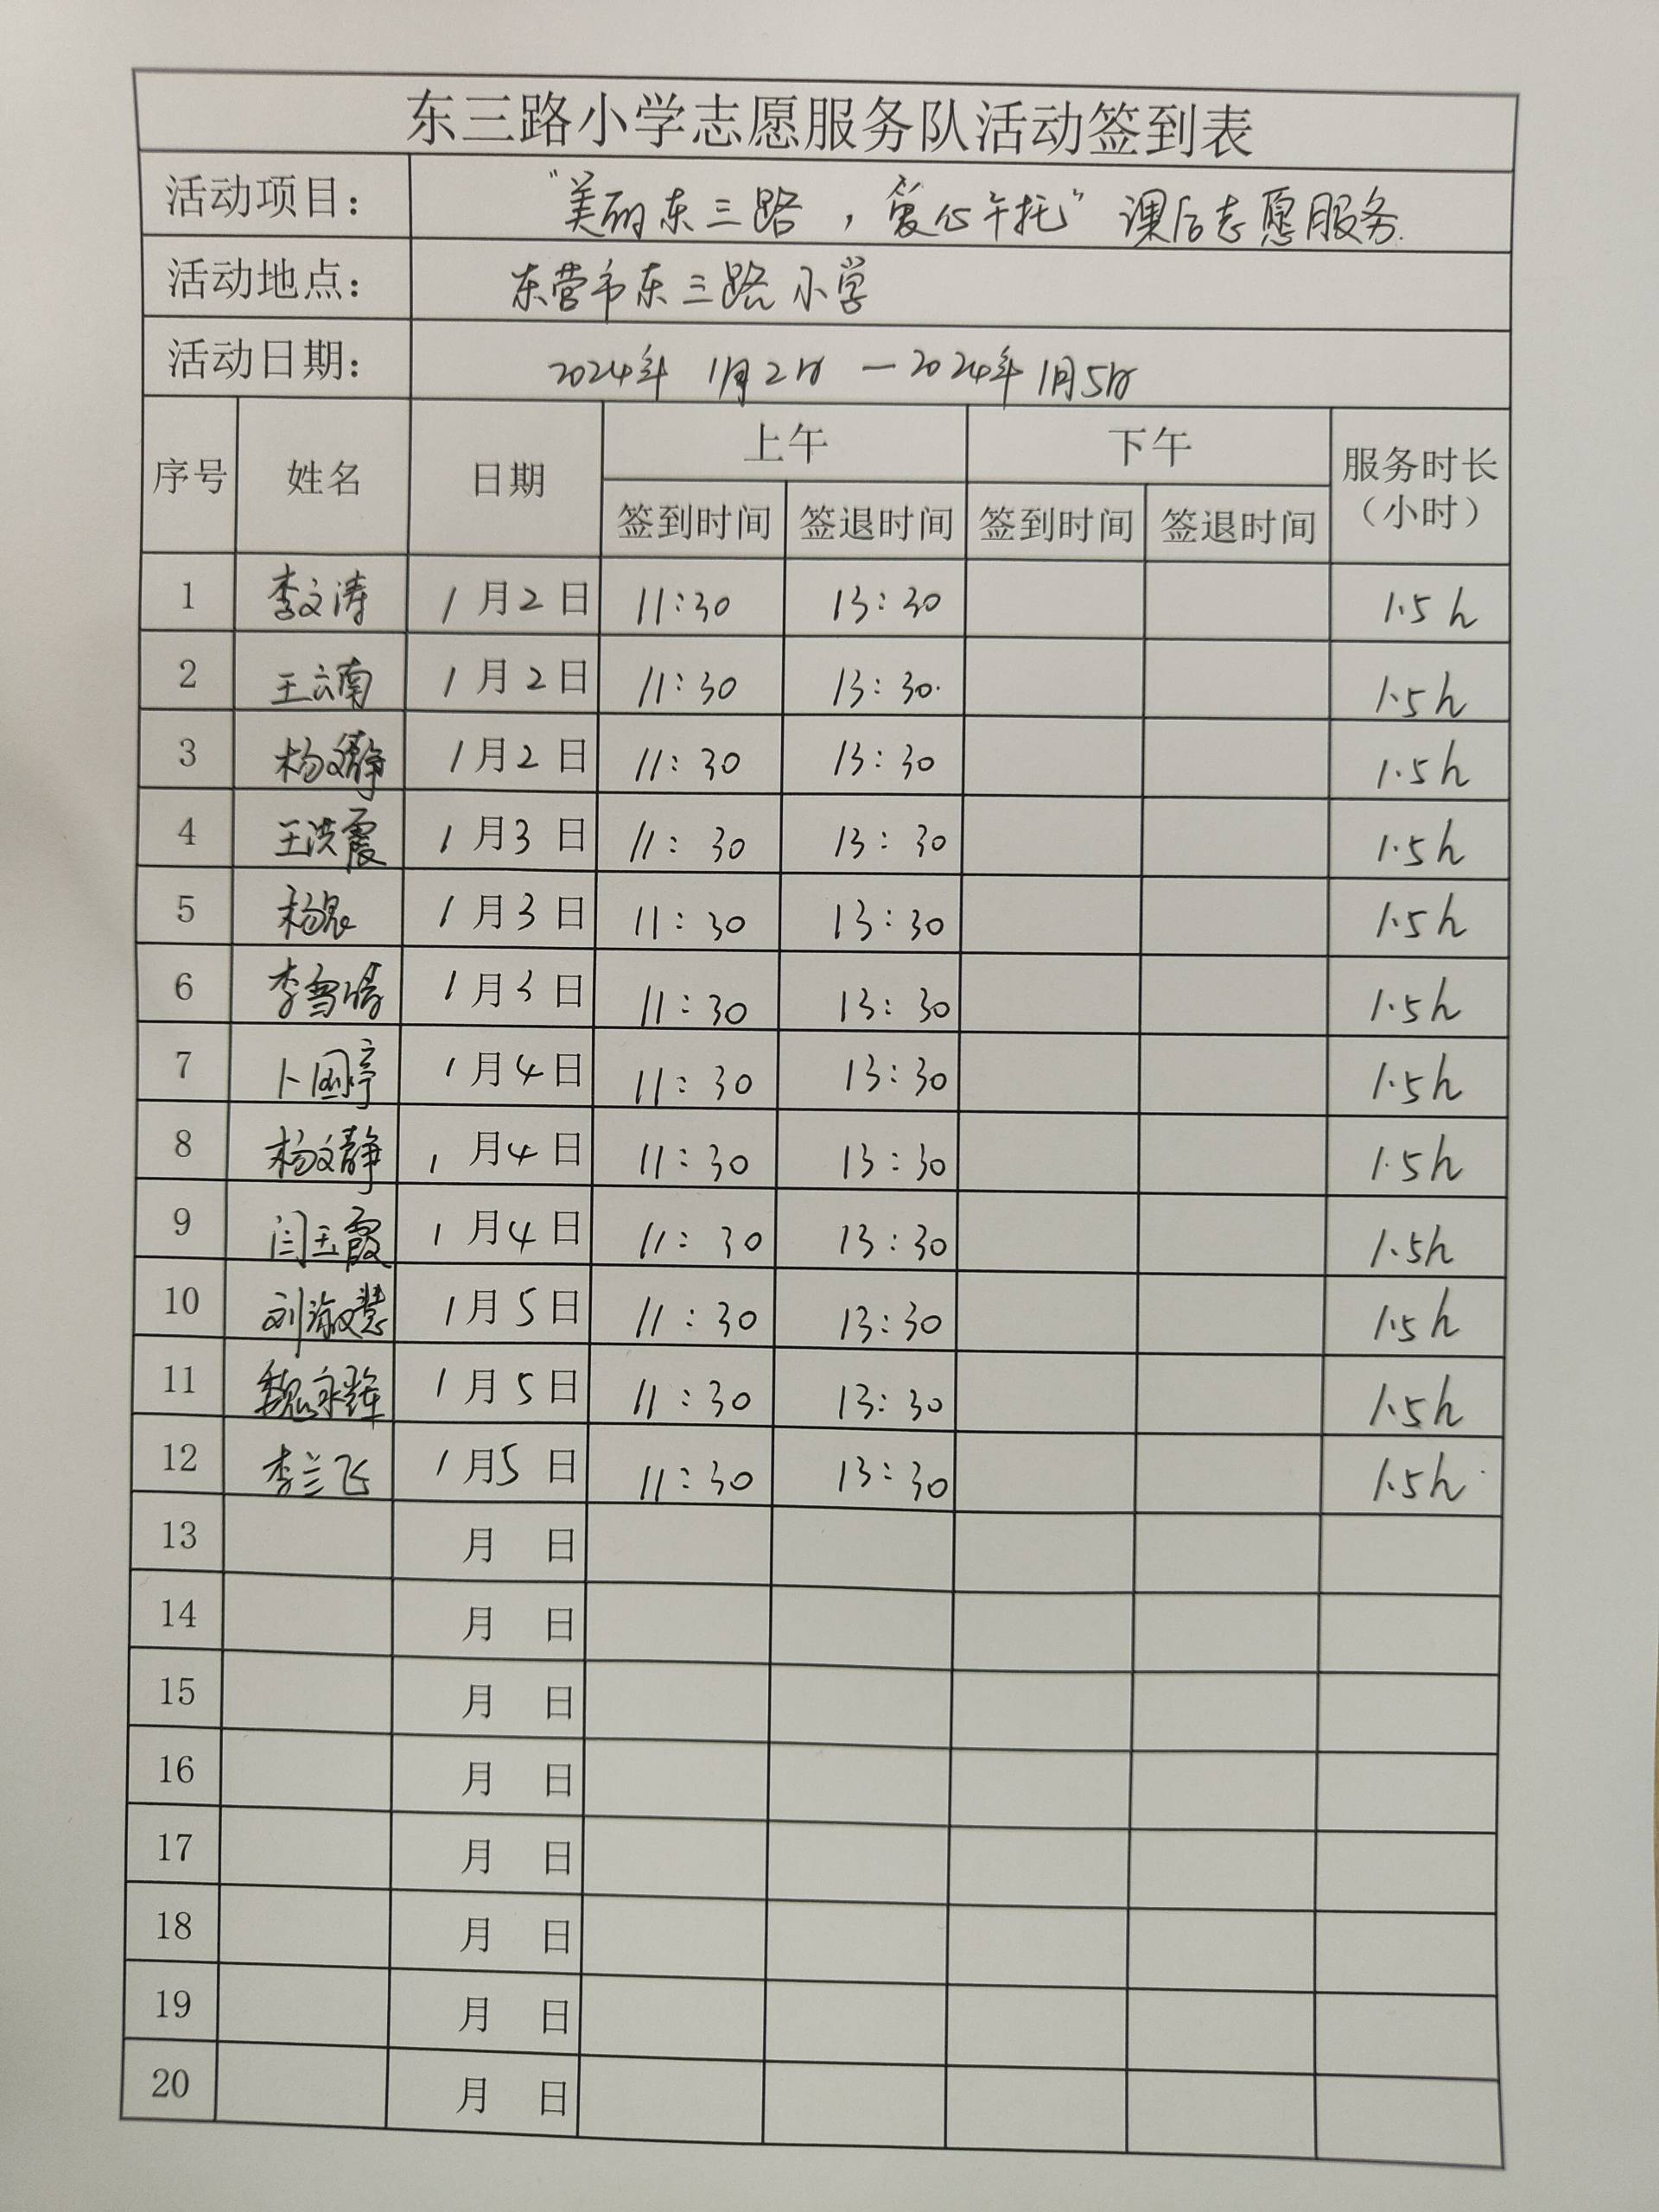 东三路小学志愿服务队活动签到表
活动项目： "美丽东三路，爱心午托"课后志愿服务.
活动地点： 东营市东三路小学
活动日期： 2024年1月2日—2024年1月5日
序号 姓名 日期 上午 下午 服务时长（小时）
签到时间 签退时间 签到时间 签退时间
1 李文涛 1月2日 11:30 13:30 1.5h
2 王云南 1月2日 11:30 13:30 1.5h
3 杨文静 1月2日 11:30 13:30 1.5h
4 王洪霞 1月3日 11:30 13:30 1.5h
5 1月3日 11:30 13:30 1.5h
6 李雪倩 1月3日 11:30 13:30 1.5h
7 1月4日 11:30 13:30 1.5h
8 杨文静 1月4日 11:30 13:30 1.5h
9 闫玉霞 1月4日 11:30 13:30 1.5h
10 刘淑慧 1月5日 11:30 13:30 1.5h
11 魏永辉 1月5日 11:30 13:30 1.5h
12 李兰飞 1月5日 11:30 13:30 1.5h
13 月 日
14 月 日
15 月 日
16 月 日
17 月 日
18 月 日
19 月 日
20 月 日